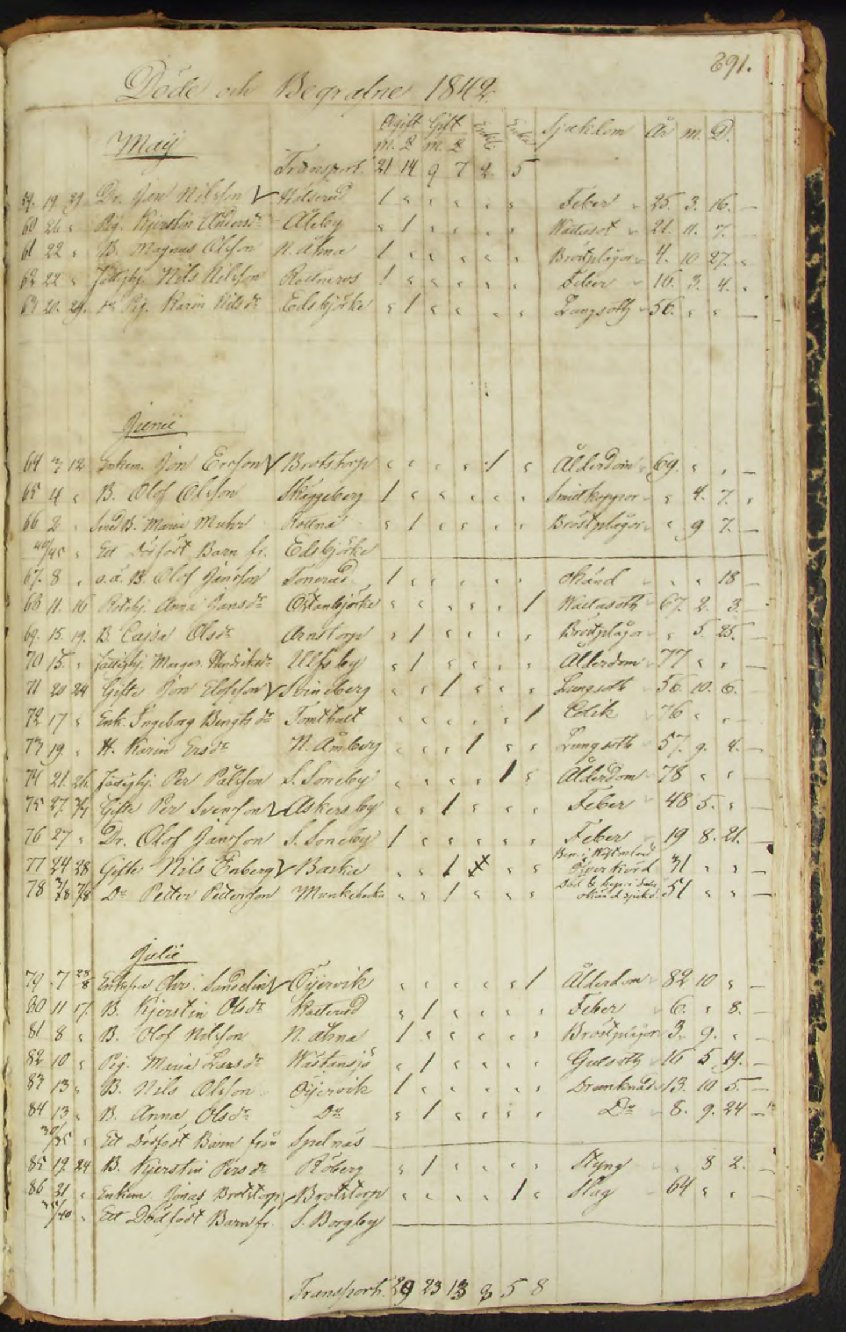 291.
Döde och Begrafne 1842.
Ogift Gift Enkl. Enkor Sjukdom År m. D.
Maij m. q m. q
Transport. 21 14 9 7 2 5
59. 19 29 Dr. Jon Nilsson Helserud 1 Feber 25. 3. 16.
60 26 " Pig. Kjerstin Andersdr Åleby 1 Wattusot 21. 11. 7.
61 22 " B. Magnus Olsson N. åhna 1 Bröstplågor 4. 10 27.
62 22 " fattighj. Nils Nilsson Rottneros 1 Feber 16. 3. 4.
63 20. 29. Pig. Karin Nilsdr Edsbjörke 1 Lungsoth 56.
Junii
64 12 Enkem. Jon Ersson Brotstorp 1 Ålderdom 69.
65 4 " B. Olof Olsson Skeggeberg 1 Smitkoppor " 4. 7.
66 2 " B. Maria Muhr Rottna 1 Bröstplågor " 9 7.
Ett Dödfödt Barn fr. Edsbjörke
67. 8 " o.ä. B. Olof Jansson Tonerud 1 okänd " " 18
68 11. 16 Anna Jansdr Östanbjörke 1 Wattusoth 67. 2. 3.
69. 15. 19. B. Cajsa Olsdr Arnstorp 1 Bröstplågor " 5. 25.
70 15. " fattighj. Margar. Hendriksdr Ulfsby 1 Ålderdom 77
71 20 24 Gifte Jon Elofsson Svineberg 1 Lungsoth 56 10. 6.
72 17 " Enk. Ingeborg Bengtsdr Tomthult 1 Colik 76
73 19 " H. Karin Ersdr N. Åmberg 1 Lungsoth 57. 9. 4.
74 21. 26. fattighj. Per Pålsson S. Soneby 1 Ålderdom 78
75 27. 3/7 Gifte Per Svensson Askersby 1 Feber 48 5.
76 27 " Dr. Olof Jansson S. Soneby 1 Feber 19 8. 21.
77 24 28 Gifte Nils Enberg Baskie 1 31
78 3/8 7/8 Do Petter Pettersson Munkebacka 1 51
Julii
79. 7 Chr. Sundelin Öijervik 1 Ålderdom 82 10
80 11 17. B. Kjerstin Olsdr 1 Feber 6. " 8.
81 8 " B. Olof Nilsson N. åhna 1 Bröstplågor 3. 9.
82 10 " Pig. Maria Larsdr Wästansjö 1 Gulsoth 16 5 19.
83 13 " B. Nils Olsson Öijervik 1 Drunknad 13. 10 5.
84 13 " B. Anna Olsdr Do 1 Do 8. 9. 24
Ett Dödfödt Barn från Spelnäs
85 19. 24 B. Kjerstin Persdr Röberg 1 Styng " 8 2.
86 21 " Enkem. Jonas Brotstorp Brotstorp 1 Slag 64
Ett Dödfödt Barn fr. S. Borgeby
Transport. 29 23 13 8 5 8